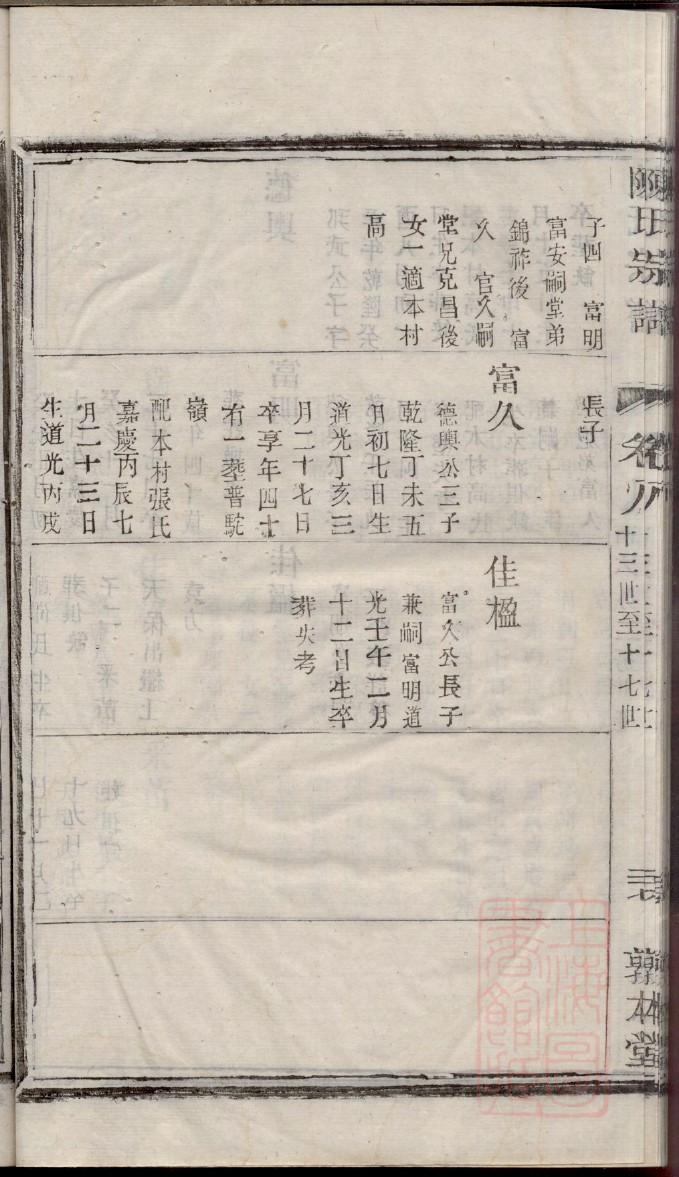 陳氏宗譜
卷八
十三世至十七世
敦本堂
子四 富明
富安嗣堂弟
錦祚後 富
久 官久嗣
堂兄克昌後
女一適本村
高
長子
富久
德輿公三子
乾隆丁未五
月初七日生
道光丁亥三
月二十七日
卒享年四十
有一塟普駝
嶺
配本村張氏
嘉慶丙辰七
月二十三日
生道光丙戌
佳楹
富久公長子
兼嗣富明道
光壬午二月
十二日生卒
葬失考
上海圖書館藏